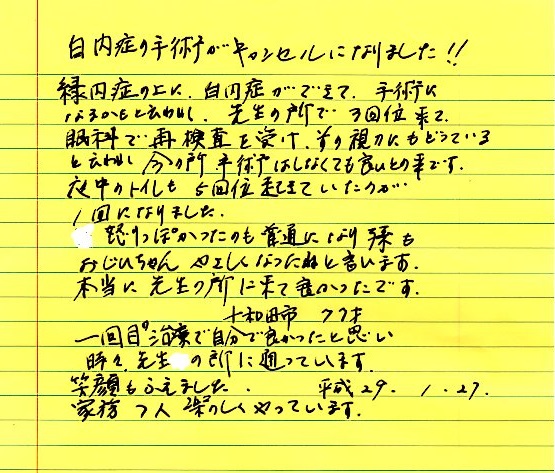 白内症の手術がキャンセルになりました!!
緑内症の上に、白内症がでてきて、手術に
なるかもと云われ、先生の所で3回位来て、
眼科で再検査を受け、その視力にもどっている
と云われ今の所手術はしなくても良いとの事です。
夜中のトイレも5回位起きていたのが
1回になりました。
怒りっぽかったのも普通になり孫も
おじいちゃんやさしくなったねと言います。
本当に先生の所に来て良かったです。
十和田市 77才
一回目の治療で自分で良かったと思い
時々、先生の所に通っています。
笑顔もふえました。 平成29. 1. 27.
家族7人楽しくやっています。